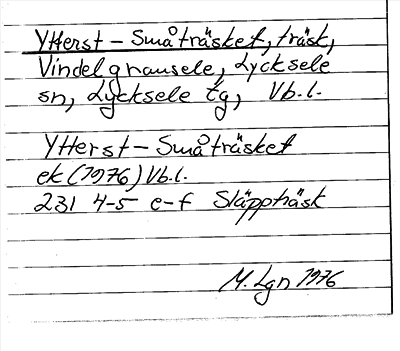 Ytterst-Småträsket, träsk,
Vindelgransele, Lycksele
sn, Lycksele tg, Vb.l.
Ytterst-Småträsket
ek (1976) Vb.l.
231 4-5 e-f Släppträsk
M. Lgn 1976